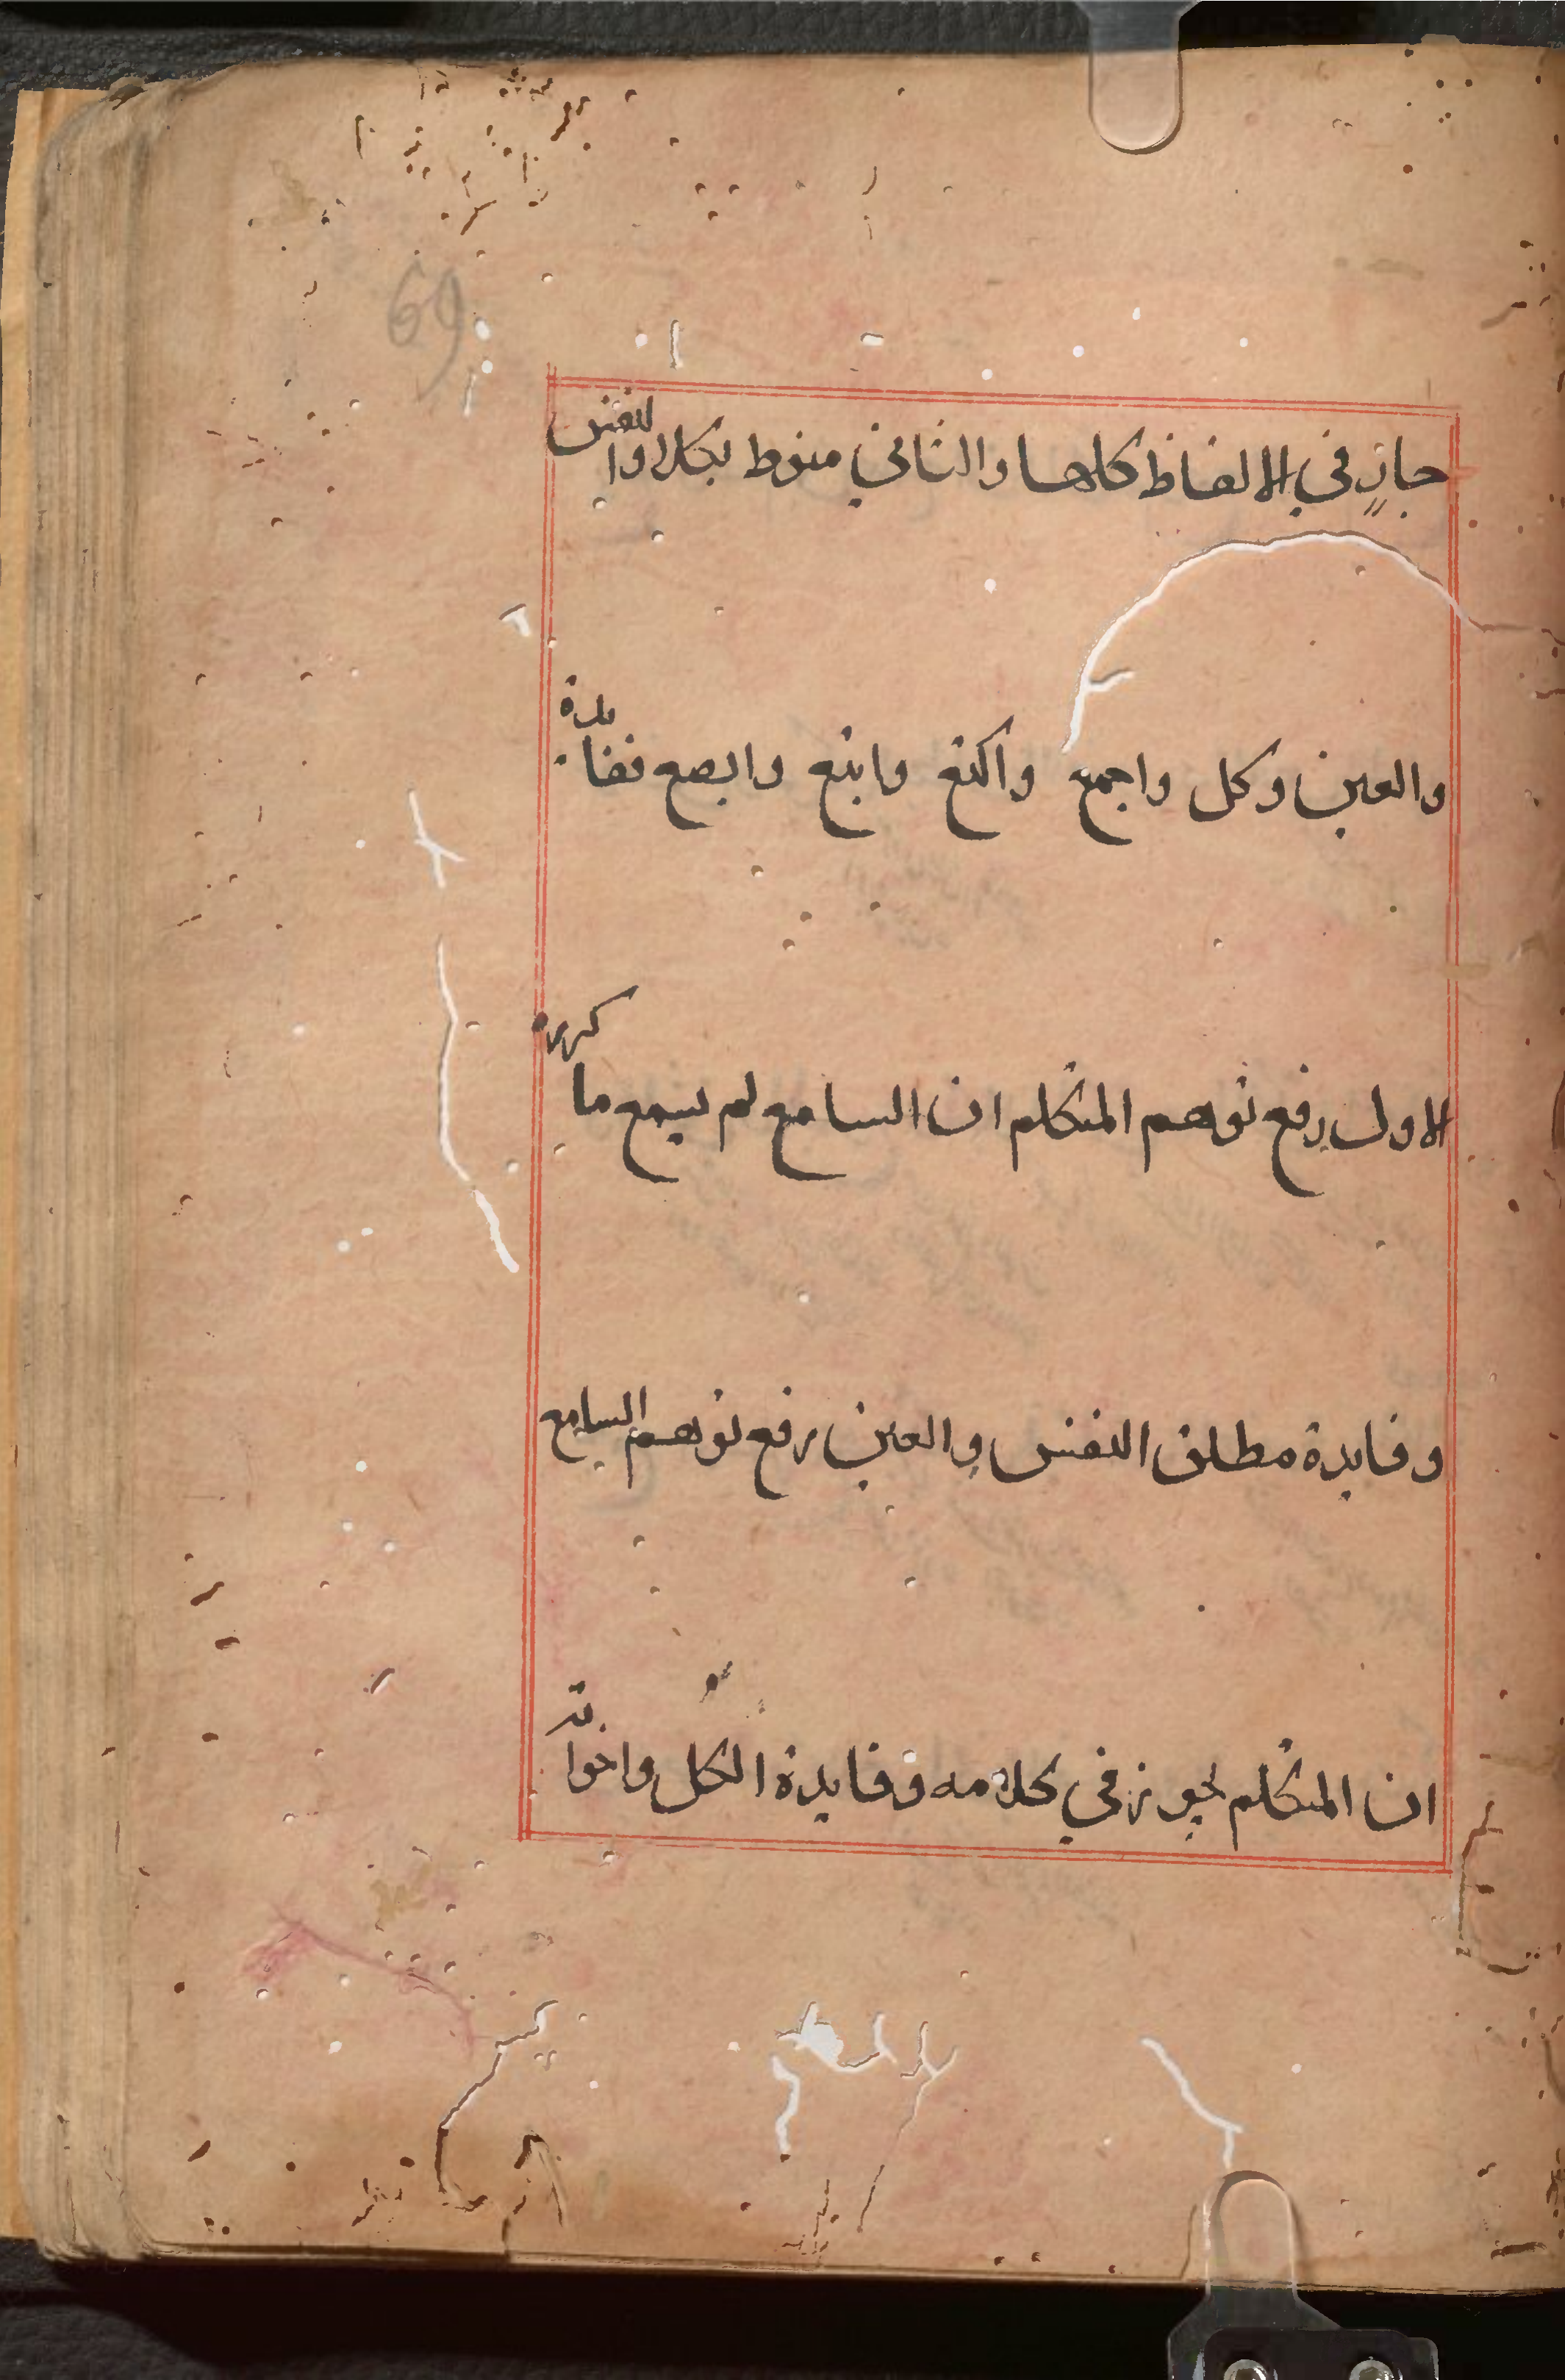 69
جارٍ في الالفاظ كلها والثاني منوط بكلا والنفس
والعين وكل واجمع واكتع وابتع وابصع ففايدة
الاول رفع توهم المتكلم ان السامع لم يسمع ما كرره
وفايدة مطلق النفس والعين رفع توهم السامع
ان المتكلم يجوز في كلامه وفايدة الكل واخواته